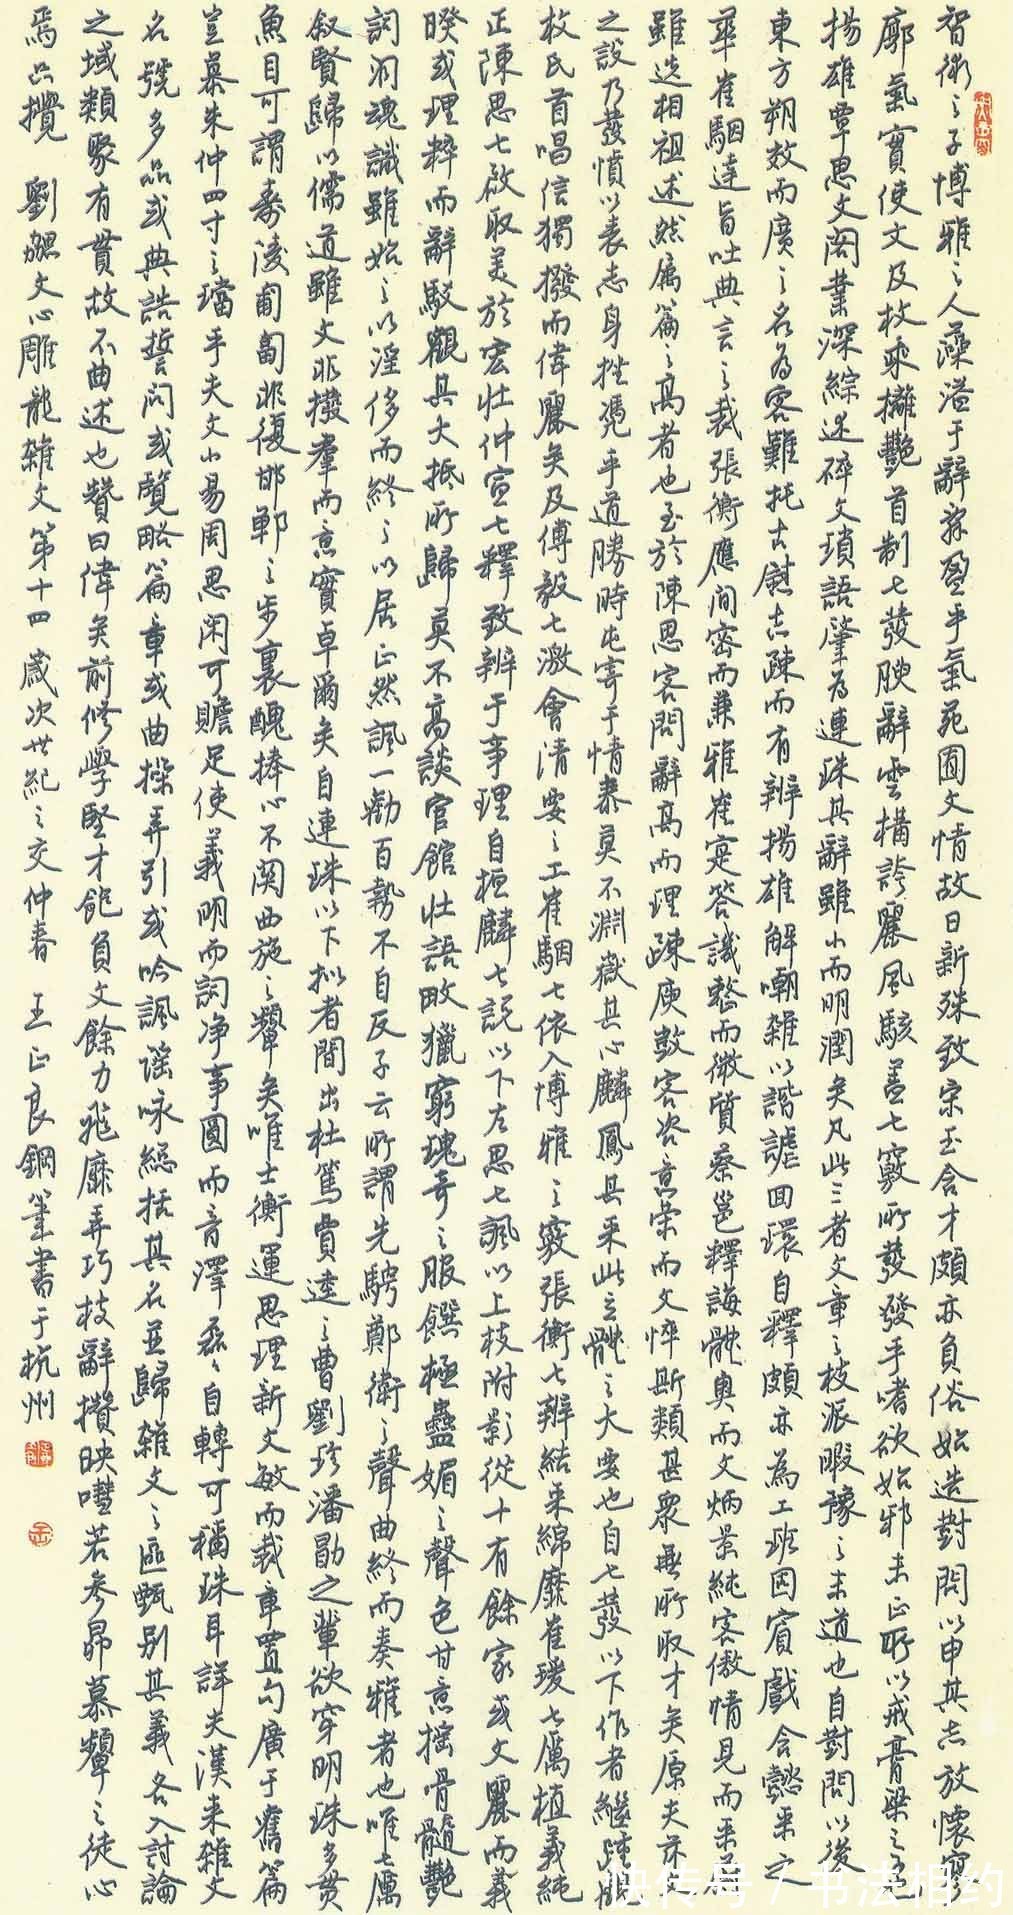 智術之子博雅之人藻溢于辭辭盈乎氣苑囿文情故日新殊致宋玉含才頗亦負俗始造對問以申其志放懷寥
廓氣實使文及枚乘攡艷首制七發腴辭雲構誇麗風駭蓋七竅所發發乎嗜欲始邪末正所以戒膏粱之子
揚雄覃思文闊業深綜述碎文瑣語肇為連珠其辭雖小而明潤矣凡此三者文章之枝派暇豫之末道也自對問以後
東方朔效而廣之名為客難托古慰志疎而有辨揚雄解嘲雜以諧謔回環自釋頗亦為工班固賓戲含懿采之
華崔駰達旨吐典言之裁張衡應間密而兼雅崔寔答譏整而微質蔡邕釋誨體奧而文炳景純客傲情見而采
雖迭相祖述然属篇之高者也至於陳思客問辭高而理疎庾敳客咨意榮而文悴斯類甚眾無所取才矣原夫茲
之設乃發憤以表志身挫憑乎道勝時屯寄于情泰莫不淵嶽其心麟鳳其采此立體之大要也自七發以下作者繼踵觀
枚氏首唱信獨撥而偉麗矣及傅毅七激會清要之工崔駰七依入博雅之竅張衡七辨結采綿靡崔瑗七厲植義純
正陳思七啟取美於宏壯仲宣七釋致辨于事理自桓麟七説以下左思七諷以上枝附影從十有餘家或文麗而義
暌或理粹而辭駁觀其大抵所歸莫不高談宮館壯語畋獵窮瑰奇之服饌極蠱媚之聲色甘意摇骨髓艷
詞洞魂識雖始之以淫侈而終之以居正然諷一勸百勢不自反子云所謂先騁鄭衛之聲曲終而奏雅者也唯七厲
叙賢歸以儒道雖文非撥羣而意實卓爾矣自連珠以下拟者間出杜篤賈逵之曹劉珍潘勖之輩欲穿明珠多貫
魚目可謂壽陵匍匐非復邯鄲之步裏醜捧心不関西施之顰矣唯士衡運思理新文敏而裁章置句廣于舊篇
豈慕朱仲四寸之璫乎夫文小易周思閑可贍足使義明而詞净事圓而音澤磊磊自轉可稱珠耳詳夫漢来雜文
名號多品或典誥誓问或覽略篇章或曲操弄引或吟諷謡咏總括其名並歸雜文之區甄别其義各入討論
之域類聚有貫故不曲述也贊曰偉矣前修學堅才飽負文餘力飛靡弄巧枝辭攢映嘒若參昴慕顰之徒心
焉只攪 劉勰文心雕龍雜文第十四 歲次世紀之交仲春 王正良鋼筆書于杭州
快传号/书法相约